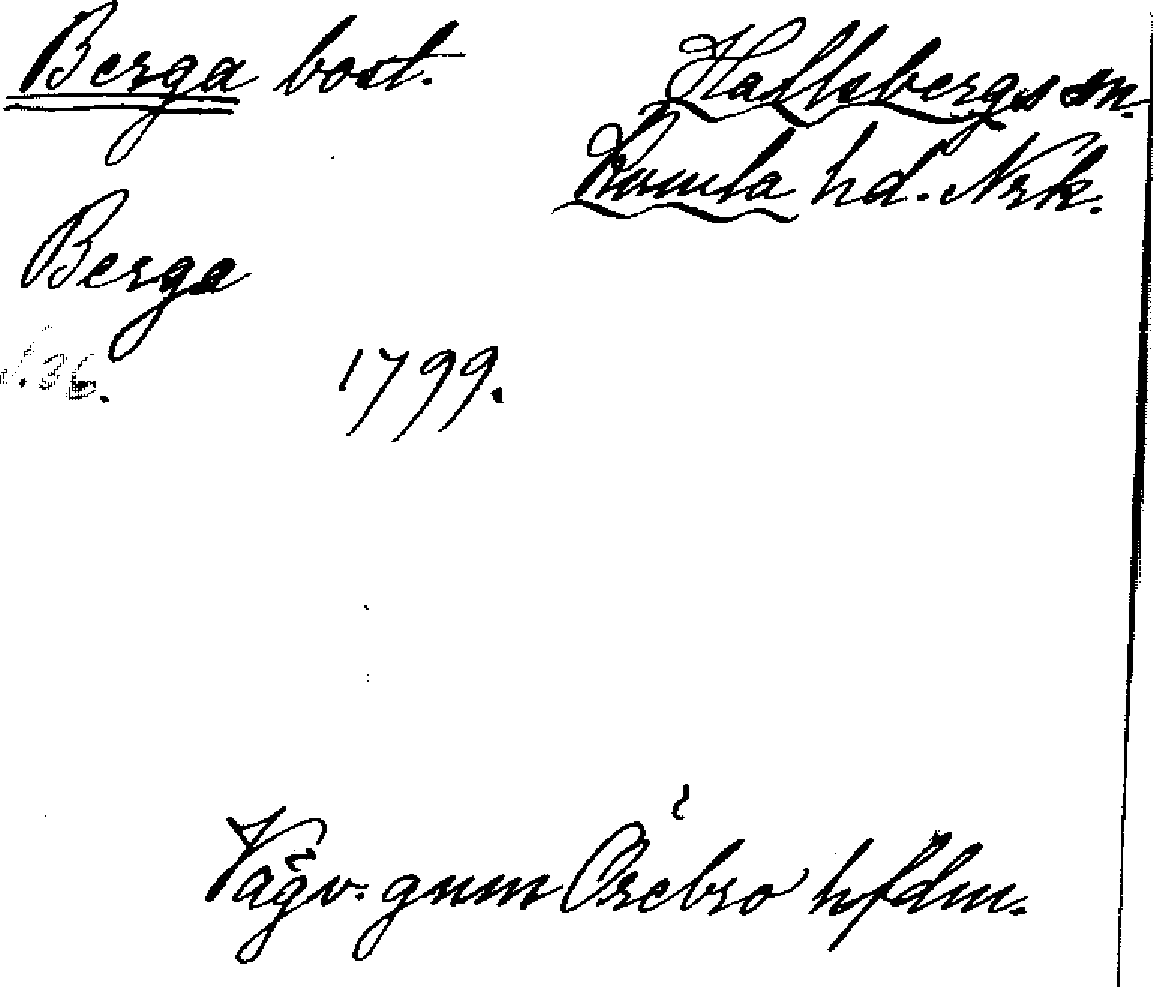 Berga bost.
Hallsbergs sn.
Kumla hd. Nrk.
Berga
36.
1799.
Vägv. gnm Örebro hfdm.